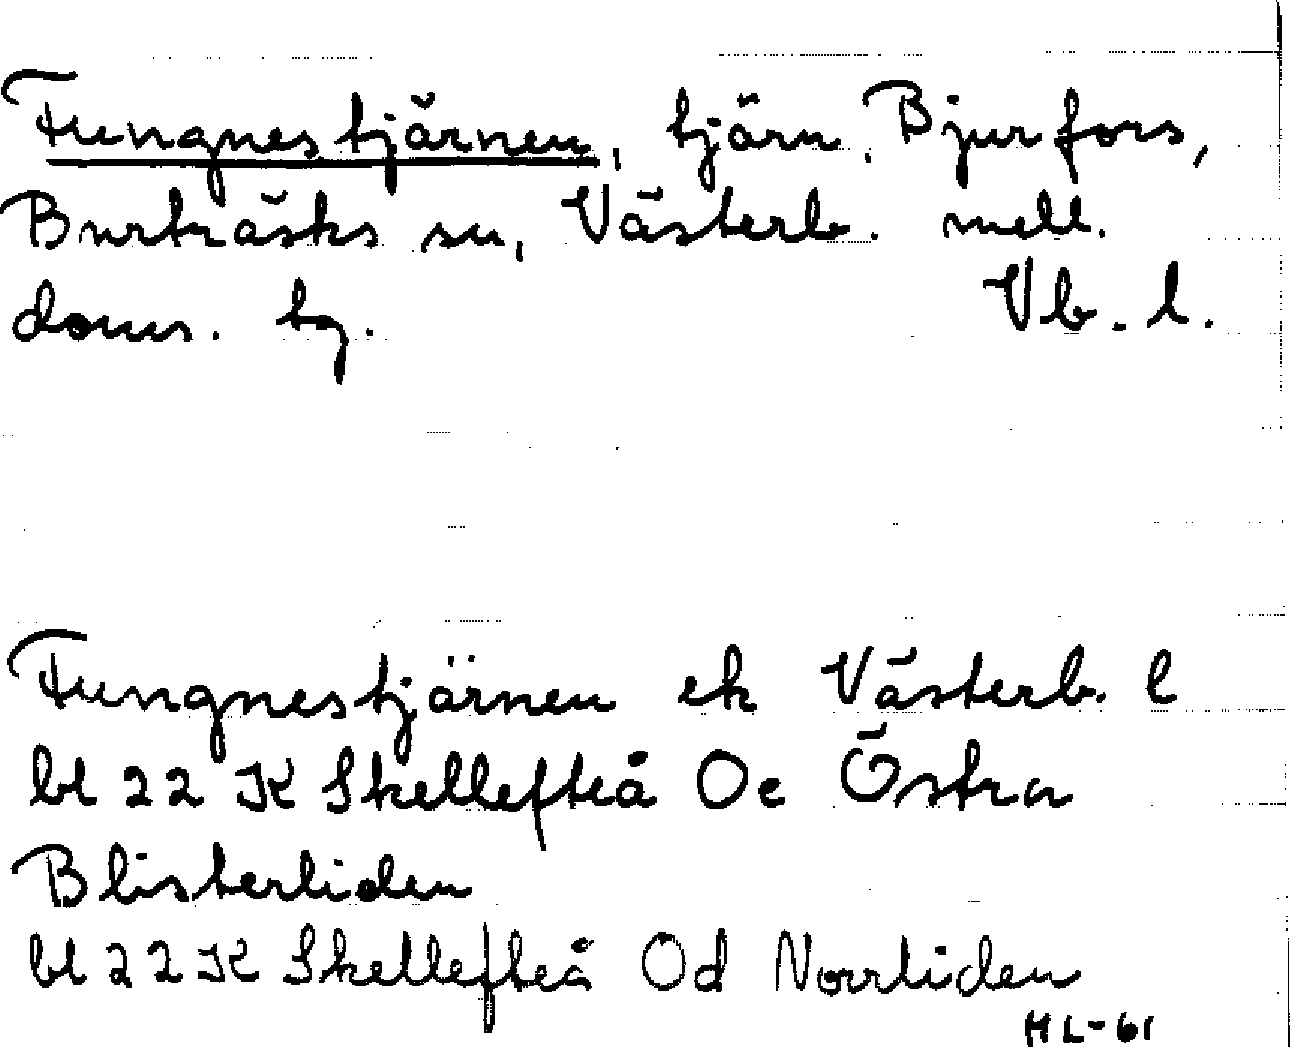 Fungnestjärnen, tjärn, Bjurfors,
Burträsks sn, Västerb. mell.
doms. tg. Vb. l.
Fungnestjärnen ek Västerb. l
bl 22 K Skellefteå Oc Östra
Blisterliden
bl 22 K Skellefteå Od Norrliden
HL-61